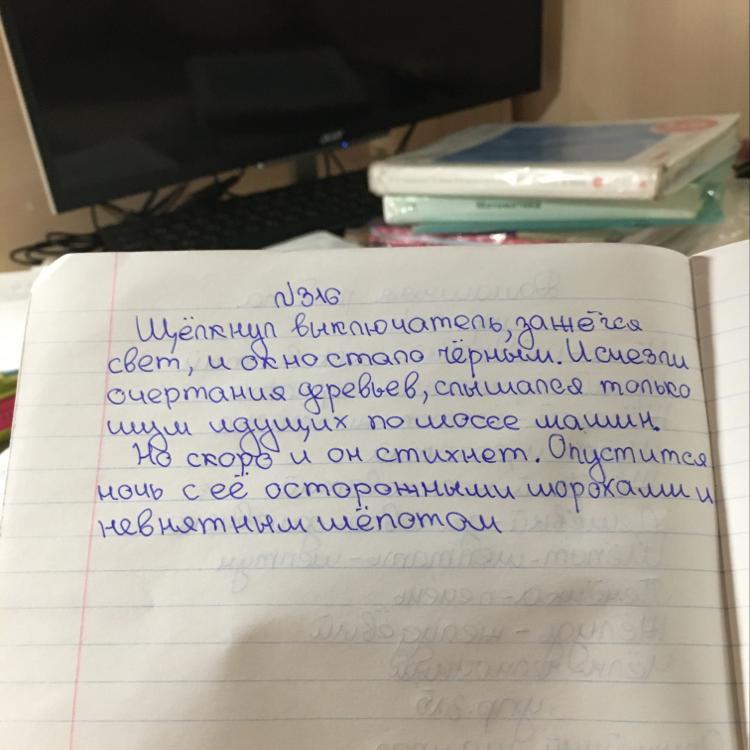 acer
Математика
№316
Щёлкнул выключатель, зажёгся
свет, и окно стало чёрным. Исчезли
очертания деревьев, слышался только
шум идущих по шоссе машин.
Но скоро и он стихнет. Опустится
ночь с её осторожными шорохами и
невнятным шёпотом